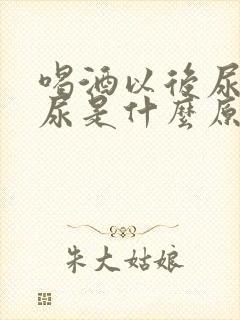 喝酒以后尿
尿是什麼原
朱大姑娘